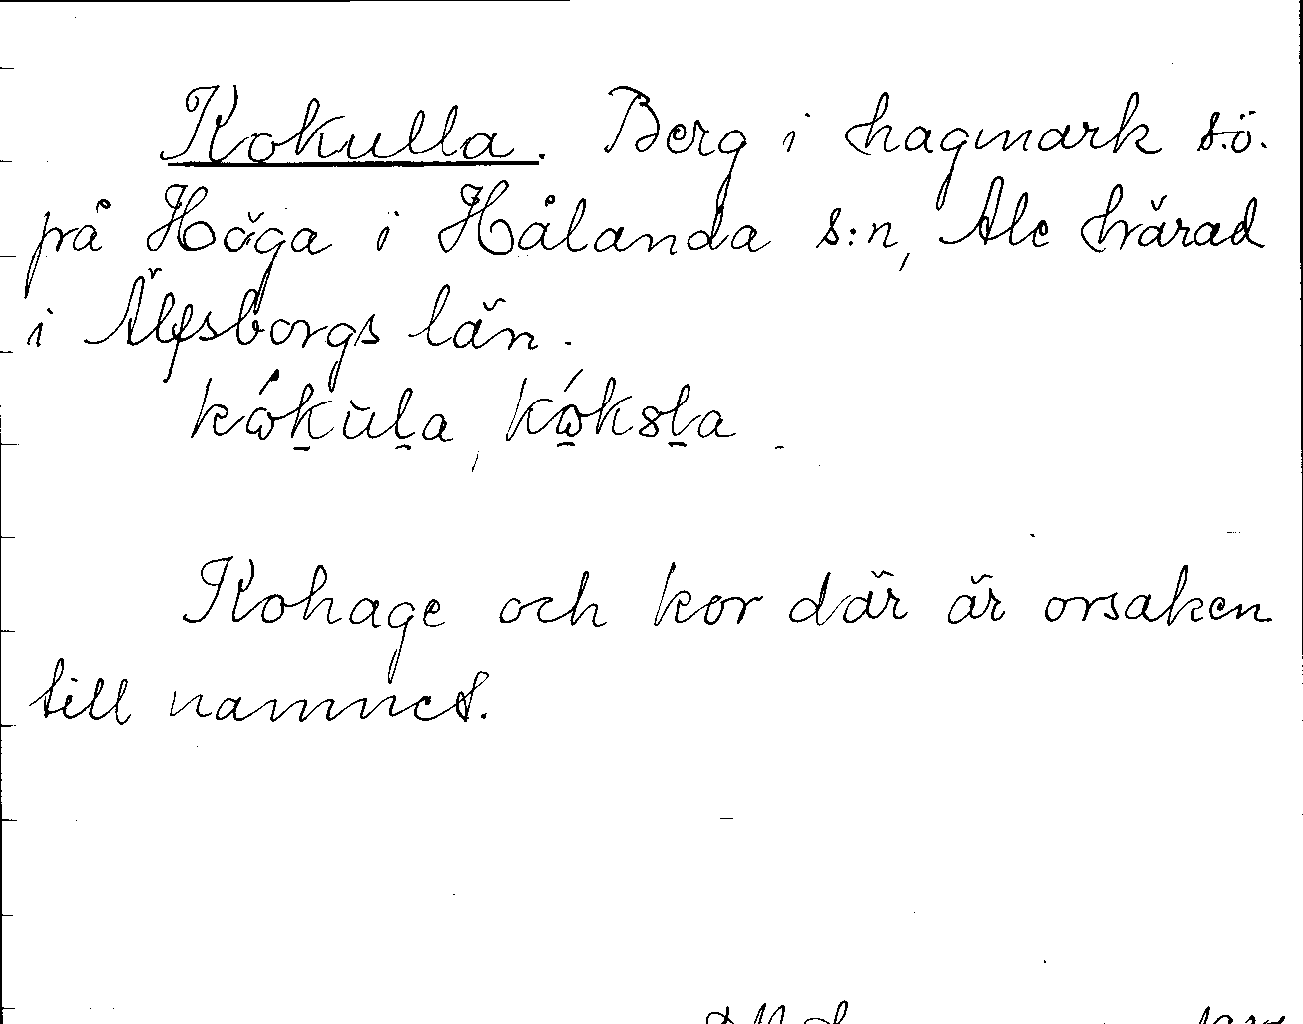 Kokulla. Berg i hagmark s.ö.
på Höga i Hålanda s:n, Ale härad
i Älfsborgs län.
kókŭla, kóksla.
Kohage och kor där är orsaken
till namnet.